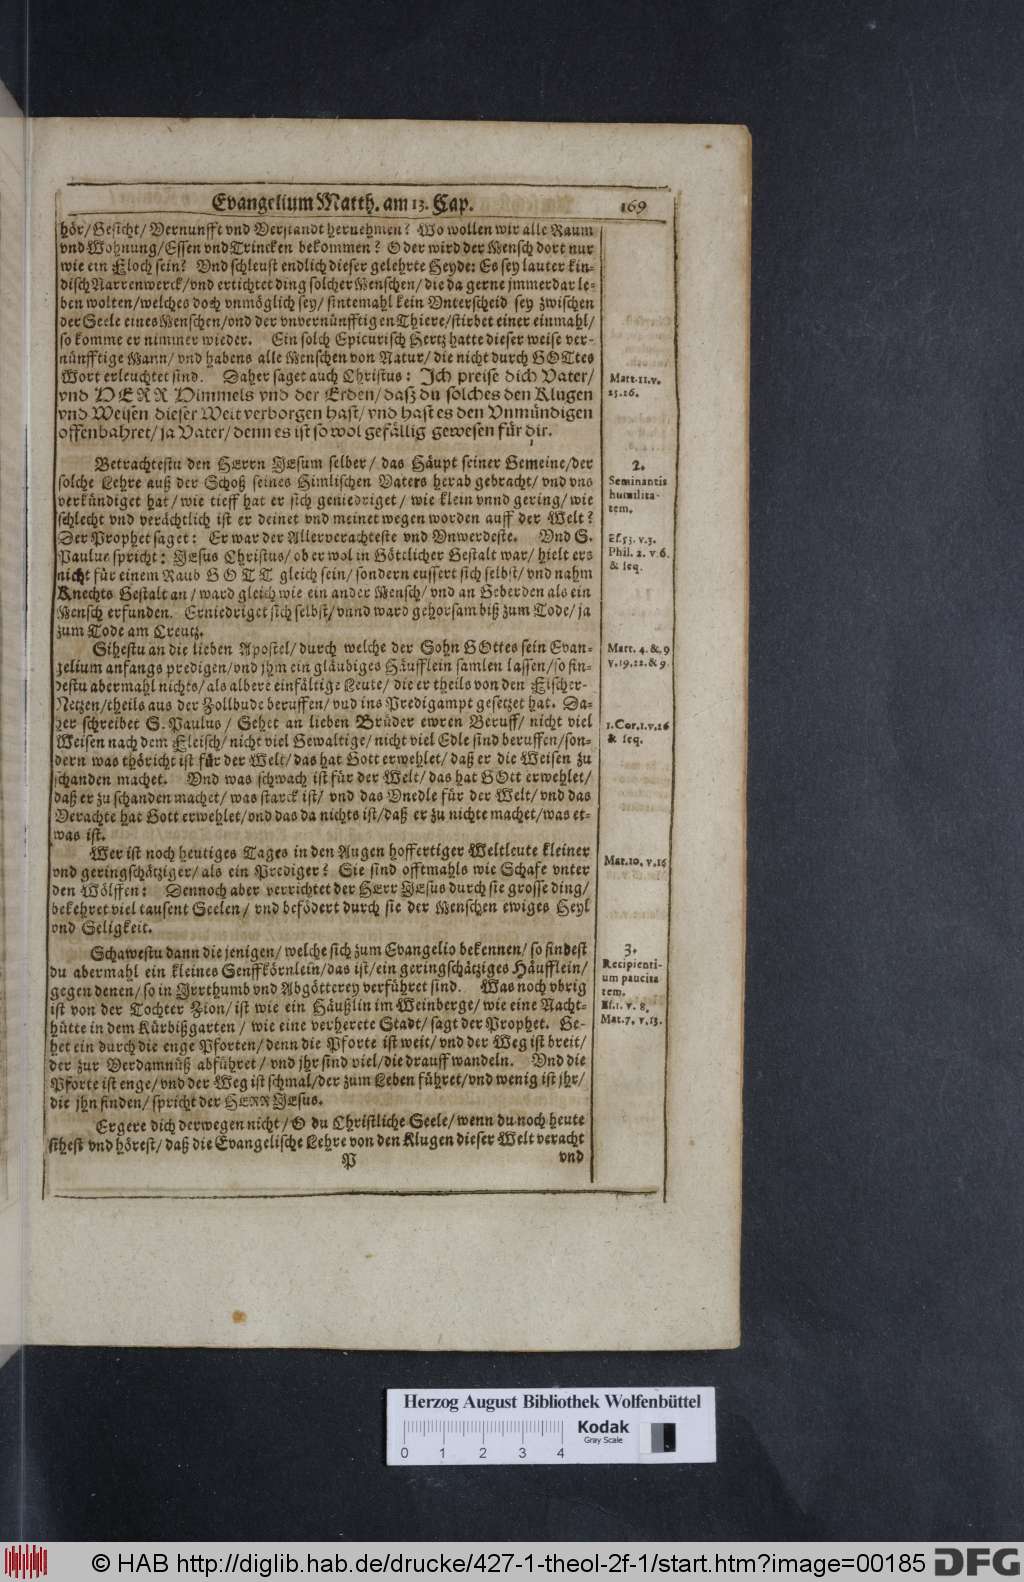 Evangelium Matth. am 13. Cap. 169
hör/ Gesicht/ Vernunfft vnd Verstandt hernehmen? Wo wollen wir alle Raum
vnd Wohnung/ Essen vnd Trincken bekommen? Oder wird der Mensch dort nur
wie ein Floch sein? Vnd schleust endlich dieser gelehrte Heyde: Es sey lauter kin-
disch Narrenwerck/ vnd ertichtet ding solcher Menschen/ die da gerne jmmerdar le-
ben wolten/ welches doch vnmöglich sey/ sintemahl kein Vnterscheid sey zwischen
der Seele eines Menschen/ vnd der vnvernünfftigen Thiere/ stirbet einer einmahl/
so komme er nimmer wieder. Ein solch Epicurisch Hertz hatte dieser weise ver-
nünfftige Mann/ vnd habens alle Menschen von Natur/ die nicht durch GOTtes
Wort erleuchtet sind. Daher saget auch Christus: Ich preise dich Vater/
vnd HERR Himmels vnd der Erden/ daß du solches den Klugen
vnd Weisen dieser Welt verborgen hast/ vnd hast es den Vnmündigen
offenbahret/ ja Vater/ denn es ist so wol gefällig gewesen für dir.
Matt. 11. v.
25. 26.
Betrachtestu den HErrn JEsum selber/ das Häupt seiner Gemeine/ der
solche Lehre auß der Schoß seines Himlischen Vaters herab gebracht/ vnd vns
verkündiget hat/ wie tieff hat er sich geniedriget/ wie klein vnnd gering/ wie
schlecht vnd verächtlich ist er deinet vnd meinet wegen worden auff der Welt?
Der Prophet saget: Er war der Allerverachteste vnd Vnwerdeste. Vnd S.
Paulus spricht: JEsus Christus/ ob er wol in Göttlicher Gestalt war/ hielt ers
nicht für einem Raub GOTT gleich sein/ sondern eussert sich selbst/ vnd nahm
Knechts Gestalt an/ ward gleich wie ein ander Mensch/ vnd an Geberden als ein
Mensch erfunden. Erniedriget sich selbst/ vnnd ward gehorsam biß zum Tode/ ja
zum Tode am Creutz.
2.
Seminantis
humilita-
tem.
Es. 53. v. 3.
Phil. 2. v 6.
& seq.
Sihestu an die lieben Apostel/ durch welche der Sohn GOttes sein Evan-
gelium anfangs predigen/ vnd jhm ein gläubiges Häufflein samlen lassen/ so fin-
destu abermahl nichts/ als albere einfältige Leute/ die er theils von den Fischer-
Netzen/ theils aus der Zollbude beruffen/ vnd ins Predigampt gesetzet hat. Da-
her schreibet S. Paulus/ Sehet an lieben Brüder ewren Beruff/ nicht viel
Weisen nach dem Fleisch/ nicht viel Gewaltige/ nicht viel Edle sind beruffen/ son-
dern was thöricht ist für der Welt/ das hat Gott erwehlet/ daß er die Weisen zu
schanden machet. Vnd was schwach ist für der Welt/ das hat GOtt erwehlet/
daß er zu schanden machet/ was starck ist/ vnd das Vnedle für der Welt/ vnd das
Verachte hat Gott erwehlet/ vnd das da nichts ist/ daß er zu nichte machet/ was et-
was ist.
Matt. 4. & 9
v. 19. 22. & 9.
1. Cor. 1. v. 26
& seq.
Wer ist noch heutiges Tages in den Augen hoffertiger Weltleute kleiner
vnd geringschätziger/ als ein Prediger? Sie sind offtmahls wie Schafe vnter
den Wölffen: Dennoch aber verrichtet der HErr JEsus durch sie grosse ding/
bekehret viel tausent Seelen/ vnd befödert durch sie der Menschen ewiges Heyl
vnd Seligkeit.
Mat. 10. v. 16
Schawestu dann die jenigen/ welche sich zum Evangelio bekennen/ so findest
du abermahl ein kleines Senffkörnlein/ das ist/ ein geringschätziges Häufflein/
gegen denen/ so in Jrrthumb vnd Abgötterey verführet sind. Was noch vbrig
ist von der Tochter Zion/ ist wie ein Häußlin im Weinberge/ wie eine Nacht-
hütte in dem Kürbißgarten/ wie eine verherete Stadt/ sagt der Prophet. Ge-
het ein durch die enge Pforten/ denn die Pforte ist weit/ vnd der Weg ist breit/
der zur Verdamnüß abführet/ vnd jhr sind viel/ die drauff wandeln. Vnd die
Pforte ist enge/ vnd der Weg ist schmal/ der zum Leben führet/ vnd wenig ist jhr/
die jhn finden/ spricht der HERR JEsus.
3.
Recipienti-
um paucita
tem.
Es. 1. v. 8.
Mat. 7. v. 13.
Ergere dich derwegen nicht/ O du Christliche Seele/ wenn du noch heute
sihest vnd hörest/ daß die Evangelische Lehre von den Klugen dieser Welt veracht
P vnd
Herzog August Bibliothek Wolfenbüttel
Kodak
Gray Scale
0 1 2 3 4
© HAB http://diglib.hab.de/drucke/427-1-theol-2f-1/start.htm?image=00185 DFG